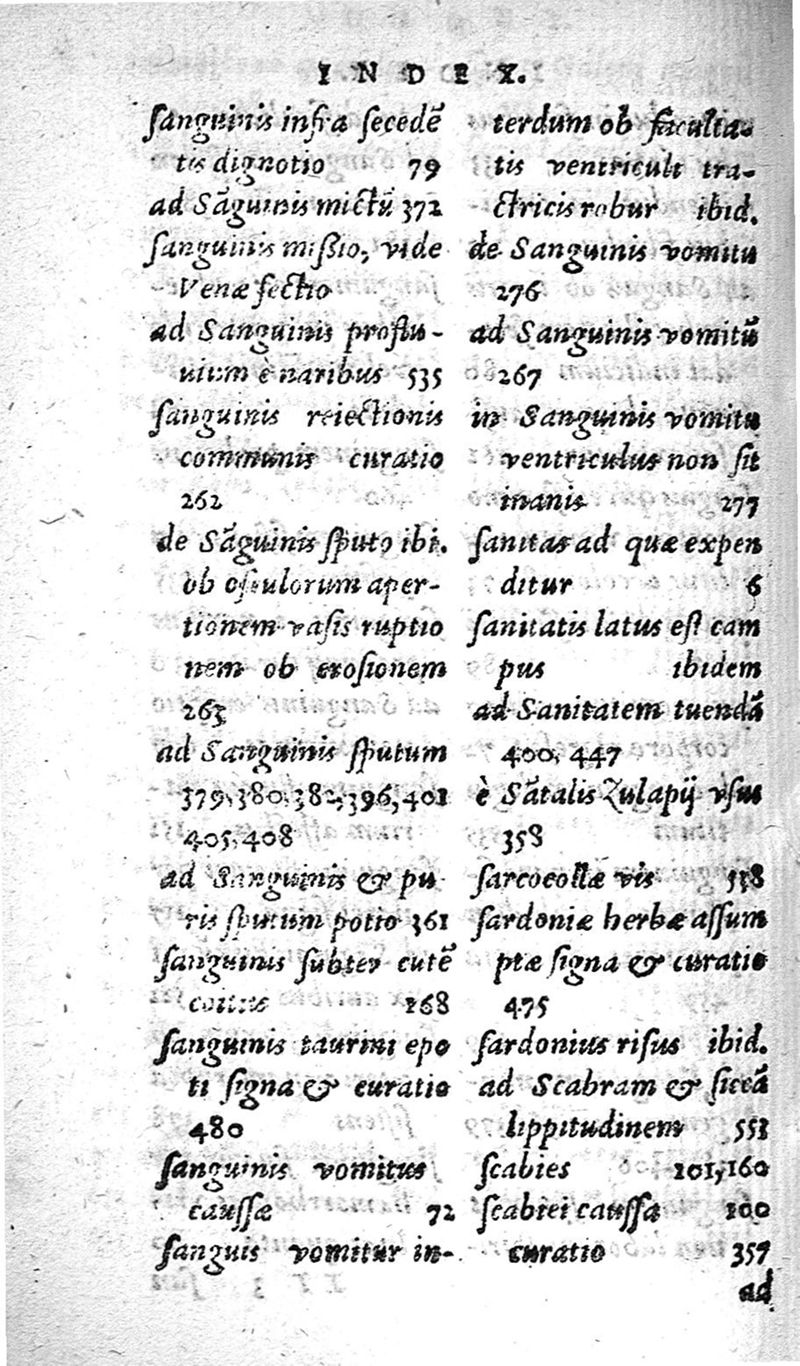 INDEX.
sanguinis infra secedẽ
tis dignotio 79
ad Sãguinis mictũ 372
sanguinis missio, vide
Venæ sectio
ad Sanguinis proflu-
uium è naribus 535
sanguinis reiectionis
communis curatio
262
de Sãguinis sputo ibi.
ob osculorum aper-
tionem vasis ruptio
nem ob erosionem
263
ad Sanguinis sputum
379, 380, 382, 396, 401
405, 408
ad Sanguinis & pu
ris sputum potio 361
sanguinis subter cutẽ
coitus 168
sanguinis taurini epo
ti signa & curatio
480
sanguinis vomitus
caussæ 72
sanguis vomitur in-
terdum ob faculta-
tis ventriculi tra-
ctricis robur ibid.
de Sanguinis vomitu
276
ad Sanguinis vomitũ
267
in Sanguinis vomitu
ventriculus non sit
inanis 277
sanitas ad quæ expen
ditur 6
sanitatis latus est cam
pus ibidem
ad Sanitatem tuendã
400, 447
è Sãtalis Zulapij vsus
358
sarcocollæ vis 558
sardoniæ herbæ assum
ptæ signa & curatio
475
sardonius risus ibid.
ad Scabram & siccã
lippitudinem 551
scabies 101, 160
scabiei caussa 100
curatio 357
ad